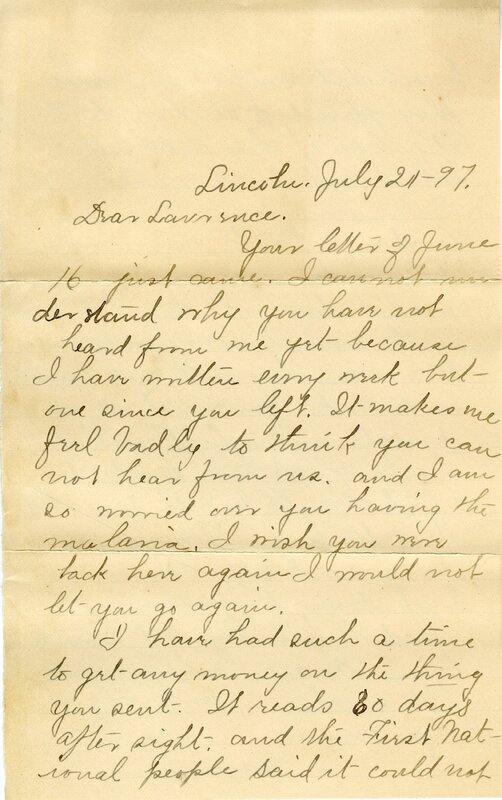 Lincoln. July 21-97.
Dear Lawrence.
Your letter of June
16 just came. I can not un
derstand why you have not
heard from me yet because
I have written every week but
one since you left. It makes me
feel badly to think you can
not hear from us. and I am
so worried over you having the
malaria. I wish you were
back here again I would not
let you go again.
I have had such a time
to get any money on the thing
you sent. It reads 60 days
after sight. and the First Nat-
ional people said it could not